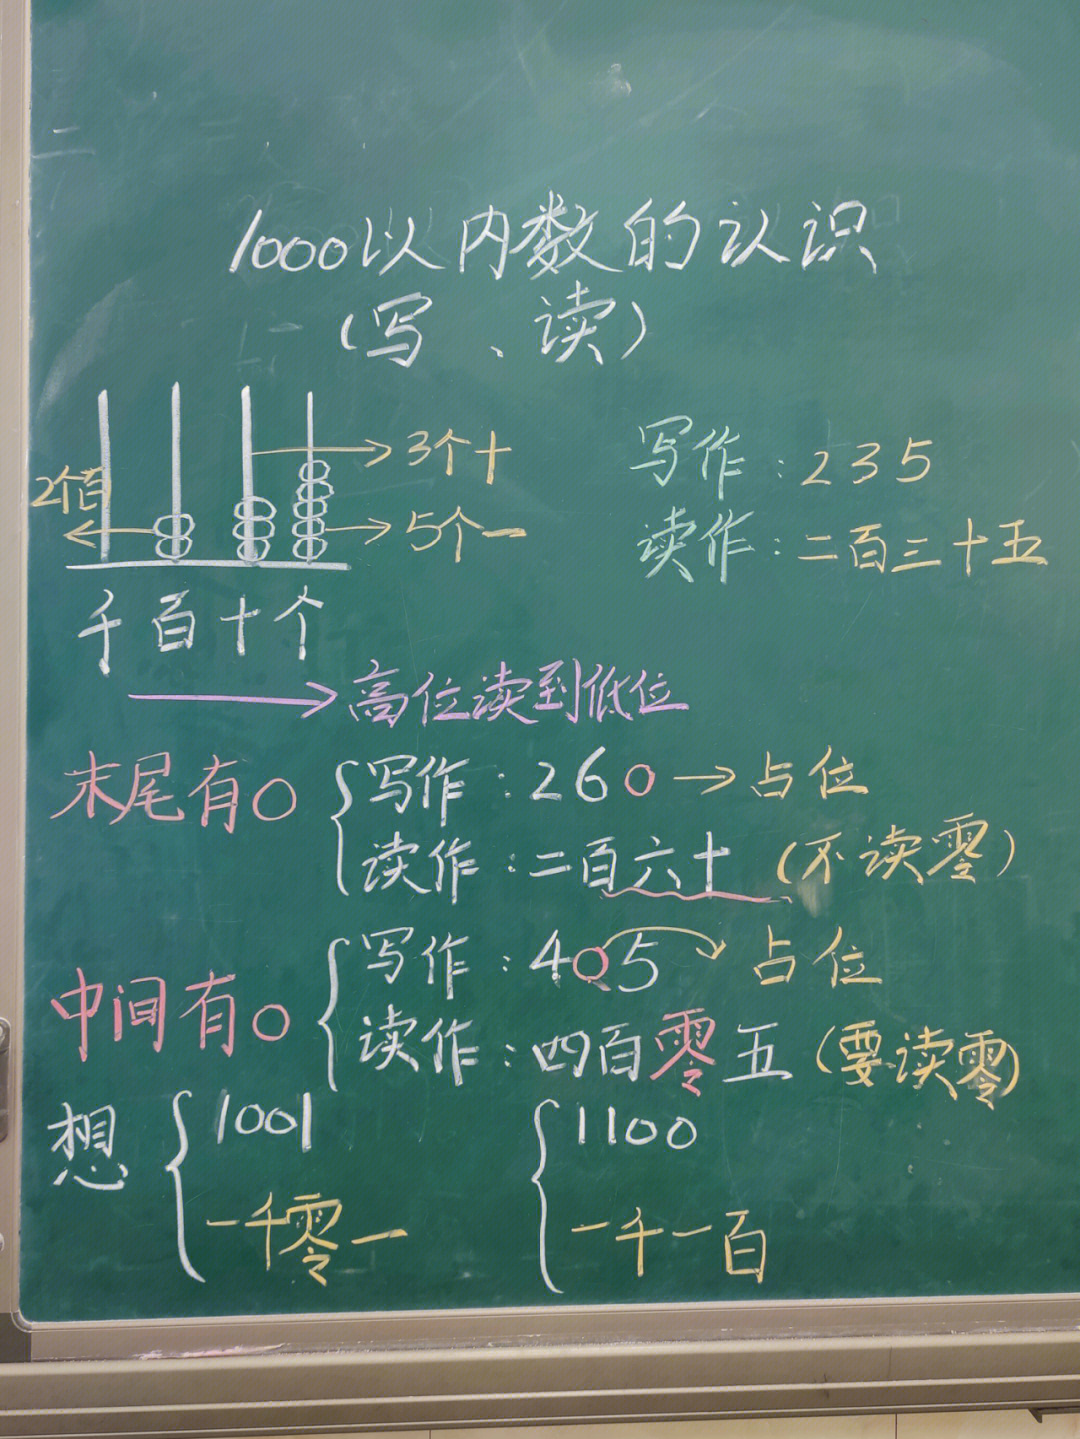 1000以内数的认识
(写、读)
3个十
2个百
5个一
千百十个
写作:235
读作:二百三十五
高位读到低位
末尾有0
写作:260→占位
读作:二百六十(不读零)
中间有0
写作:405 占位
读作:四百零五(要读零)
想
1001
一千零一
1100
一千一百